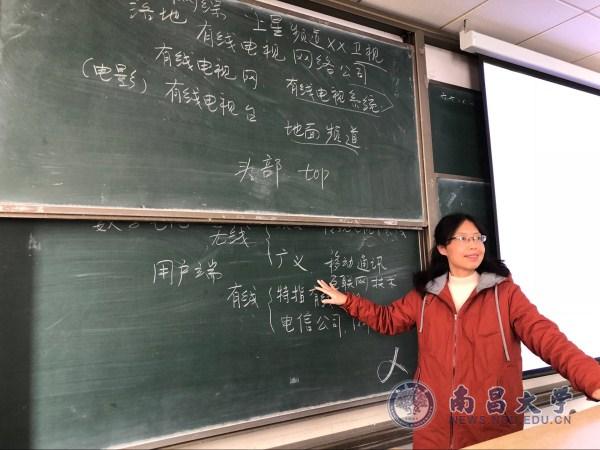 落地
上星频道XX卫视
有线电视网络公司
有线电视网
有线电视系统
(电影) 有线电视台
地面频道
头部 top
无线
广义 移动通讯
互联网技术
用户端
有线
特指
电信公司
南昌大学
NEWS.NCU.EDU.CN